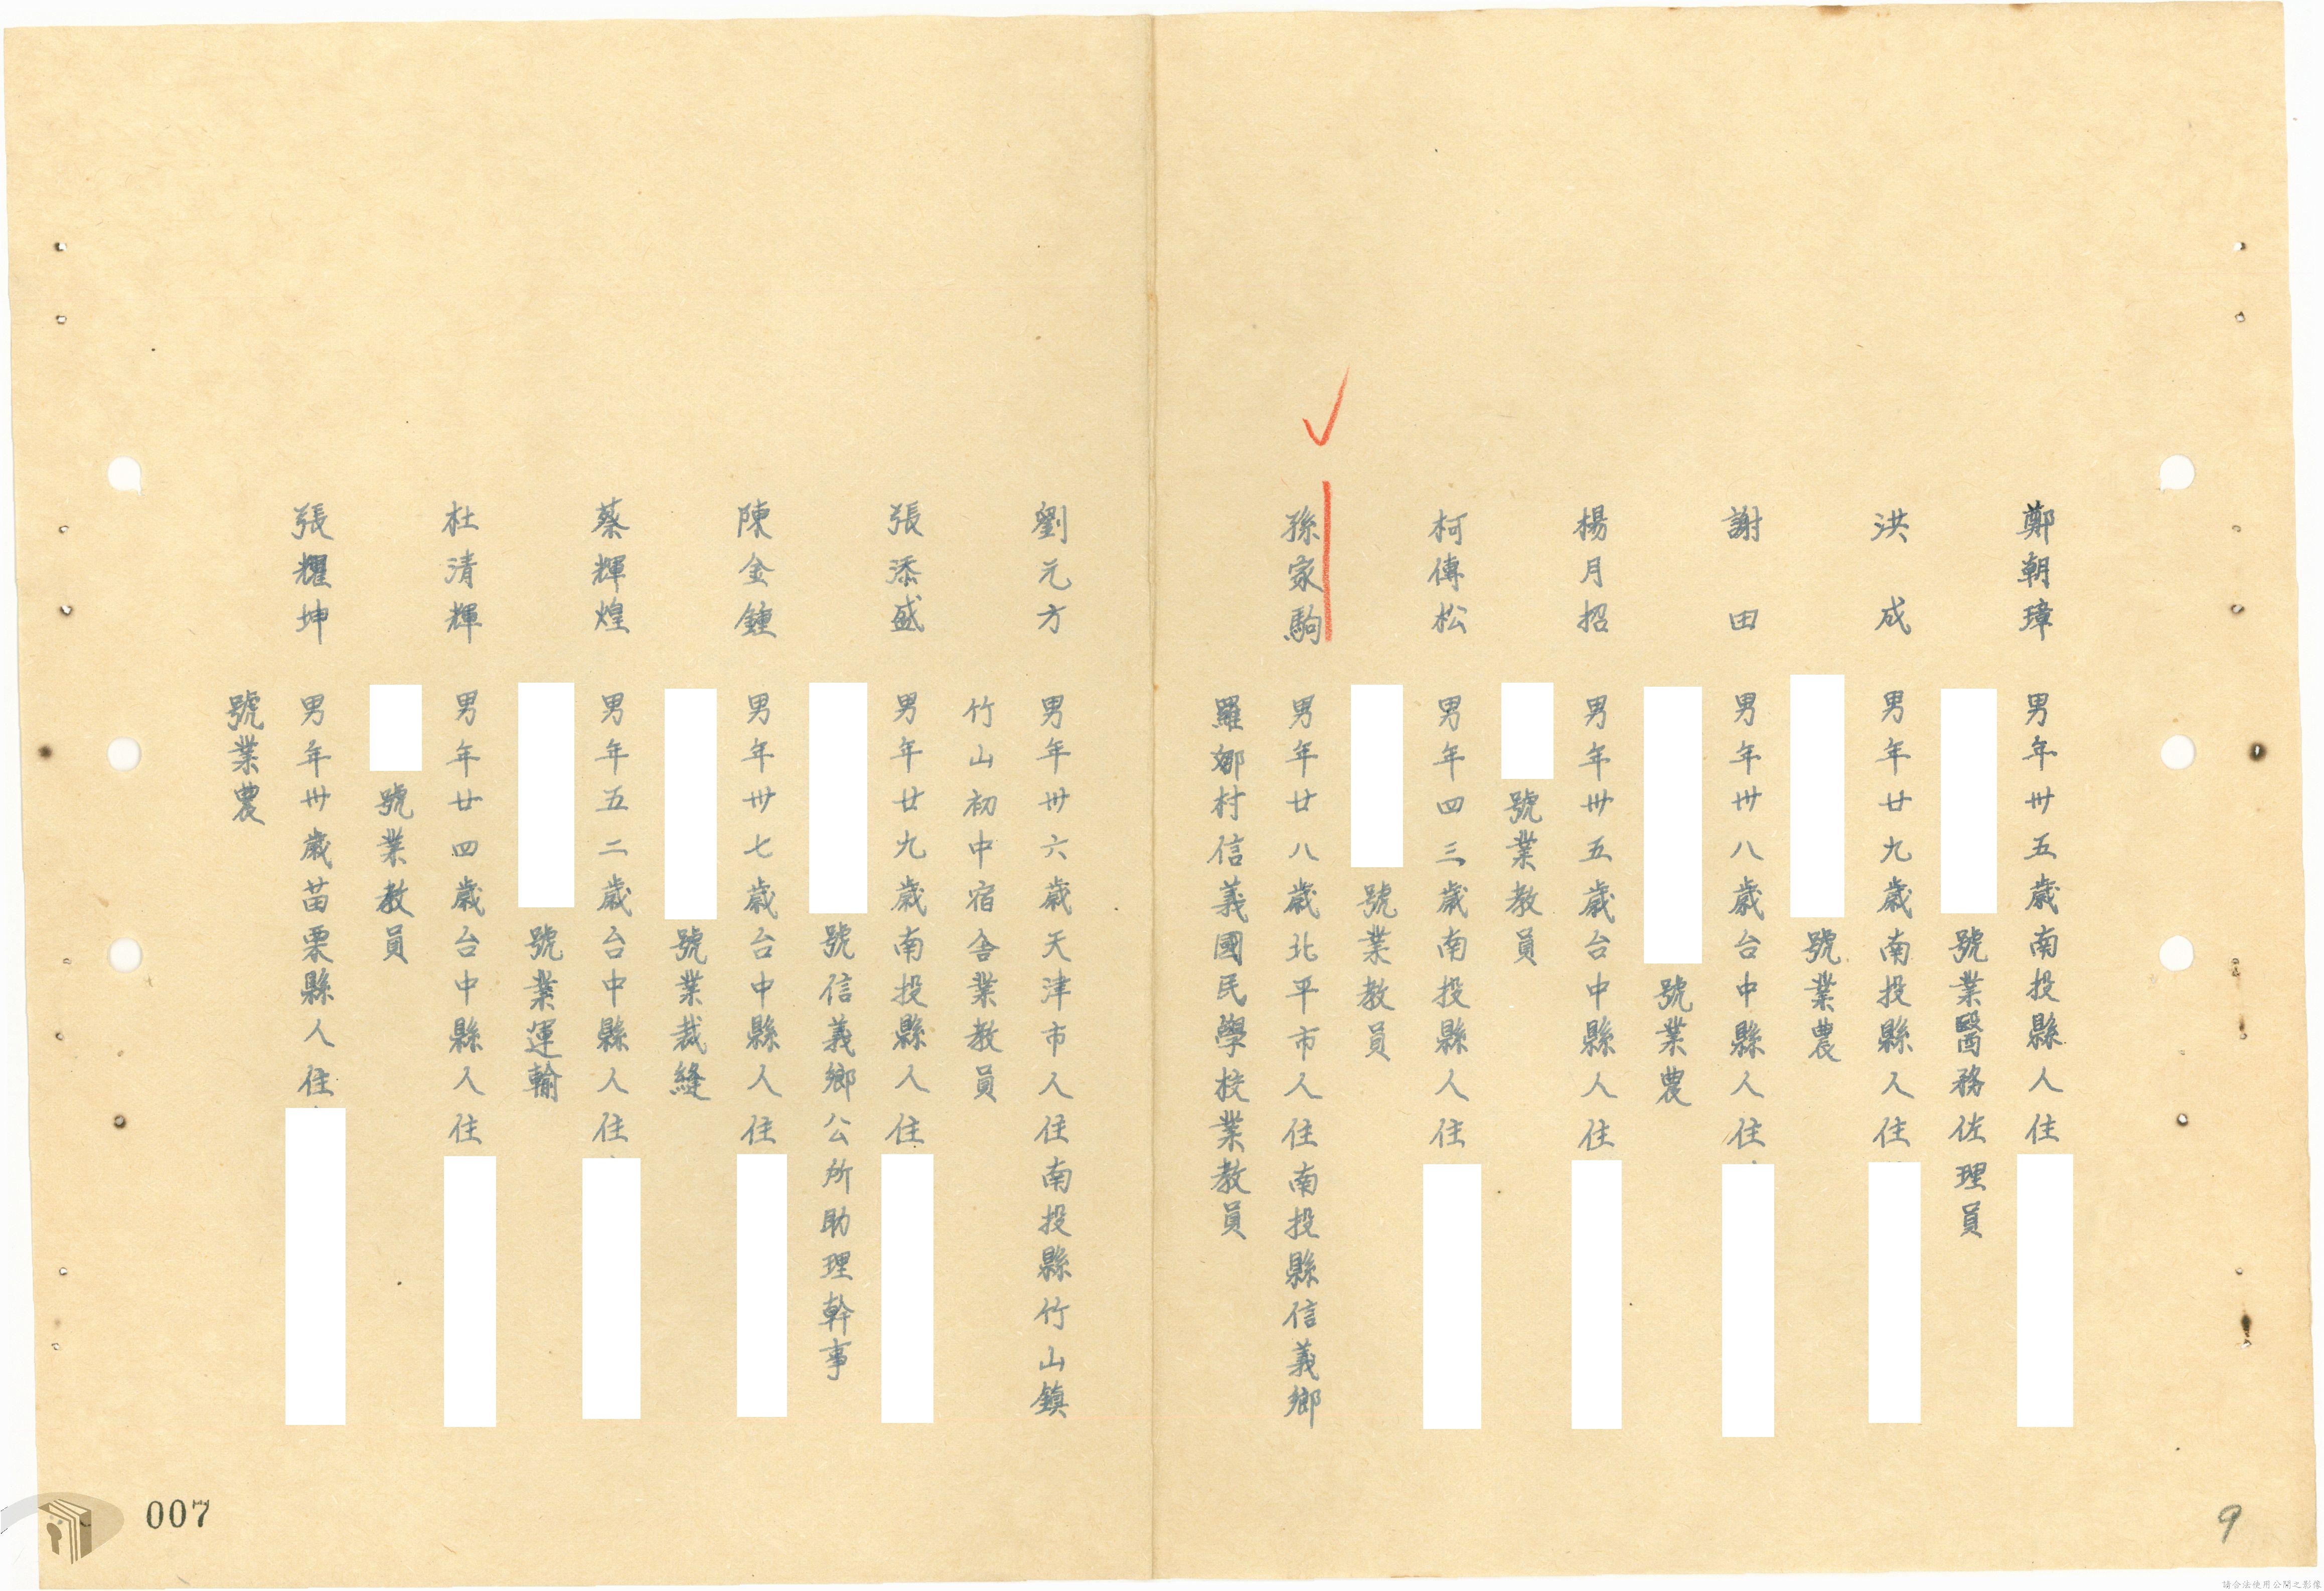 鄭朝璋　男年卅五歲南投縣人住
號業醫務佐理員
洪　成　男年廿九歲南投縣人住
號業農
謝　田　男年卅八歲台中縣人住
號業農
楊月招　男年卅五歲台中縣人住
號業教員
柯傳松　男年四三歲南投縣人住
號業教員
孫家駒　男年廿八歲北平市人住南投縣信義鄉
羅娜村信義國民學校業教員
劉元方　男年卅六歲天津市人住南投縣竹山鎮
竹山初中宿舍業教員
張添盛　男年廿九歲南投縣人住
號信義鄉公所助理幹事
陳金鍾　男年卅七歲台中縣人住
號業裁縫
蔡輝煌　男年五二歲台中縣人住
號業運輸
杜清輝　男年廿四歲台中縣人住
號業教員
張耀坤　男年卅歲苗栗縣人住
號業農
007
9
請合法使用公開之影像